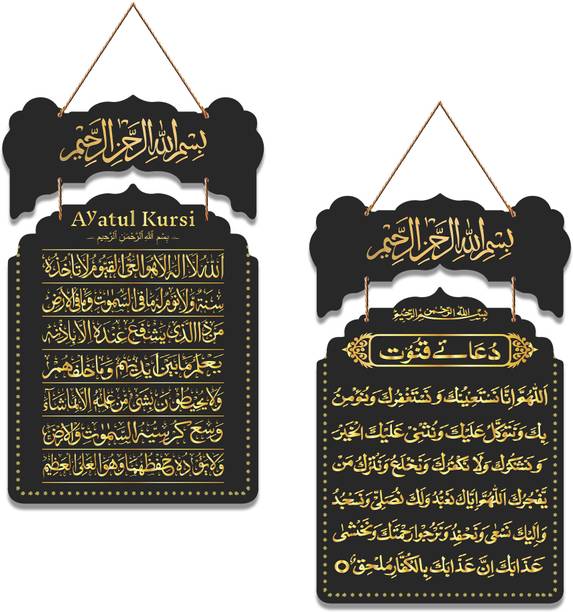 بِسْمِ اللهِ الرَّحْمٰنِ الرَّحِيْمِ
Ayatul Kursi
بِسْمِ اللهِ الرَّحْمٰنِ الرَّحِيْمِ
اَللهُ لَا اِلٰهَ اِلَّا هُوَ الْحَيُّ الْقَيُّوْمُ لَا تَاْخُذُهٗ
سِنَةٌ وَّلَا نَوْمٌ لَهٗ مَا فِي السَّمٰوٰتِ وَمَا فِي الْاَرْضِ
مَنْ ذَا الَّذِيْ يَشْفَعُ عِنْدَهٗ اِلَّا بِاِذْنِهٖ
يَعْلَمُ مَا بَيْنَ اَيْدِيْهِمْ وَمَا خَلْفَهُمْ
وَلَا يُحِيْطُوْنَ بِشَيْءٍ مِّنْ عِلْمِهٖ اِلَّا بِمَا شَاءَ
وَسِعَ كُرْسِيُّهُ السَّمٰوٰتِ وَالْاَرْضَ
وَلَا يَئُوْدُهٗ حِفْظُهُمَا وَهُوَ الْعَلِيُّ الْعَظِيْمُ
بِسْمِ اللهِ الرَّحْمٰنِ الرَّحِيْمِ
بِسْمِ اللهِ الرَّحْمٰنِ الرَّحِيْمِ
دُعَائے قُنُوت
اَللّٰهُمَّ اِنَّا نَسْتَعِيْنُكَ وَنَسْتَغْفِرُكَ وَنُؤْمِنُ
بِكَ وَنَتَوَكَّلُ عَلَيْكَ وَنُثْنِيْ عَلَيْكَ الْخَيْرَ
وَنَشْكُرُكَ وَلَا نَكْفُرُكَ وَنَخْلَعُ وَنَتْرُكُ مَنْ
يَّفْجُرُكَ اَللّٰهُمَّ اِيَّاكَ نَعْبُدُ وَلَكَ نُصَلِّيْ وَنَسْجُدُ
وَاِلَيْكَ نَسْعٰى وَنَحْفِدُ وَنَرْجُوْا رَحْمَتَكَ وَنَخْشٰى
عَذَابَكَ اِنَّ عَذَابَكَ بِالْكُفَّارِ مُلْحِقٌ